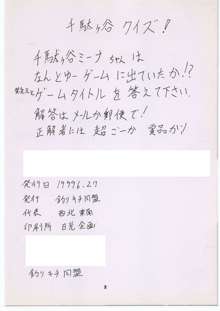 千駄ヶ谷クイズ!
千駄ヶ谷ミーナちゃんは
なんとゆーゲームに出ていたか!?
ゲームタイトルを答えて下さい。
解答はメールか郵便で!
正解者には超ごーか賞品が!
発行日 1999 6.27
発行 釣りキチ同盟
代表
印刷所 日光企画
釣りキチ同盟